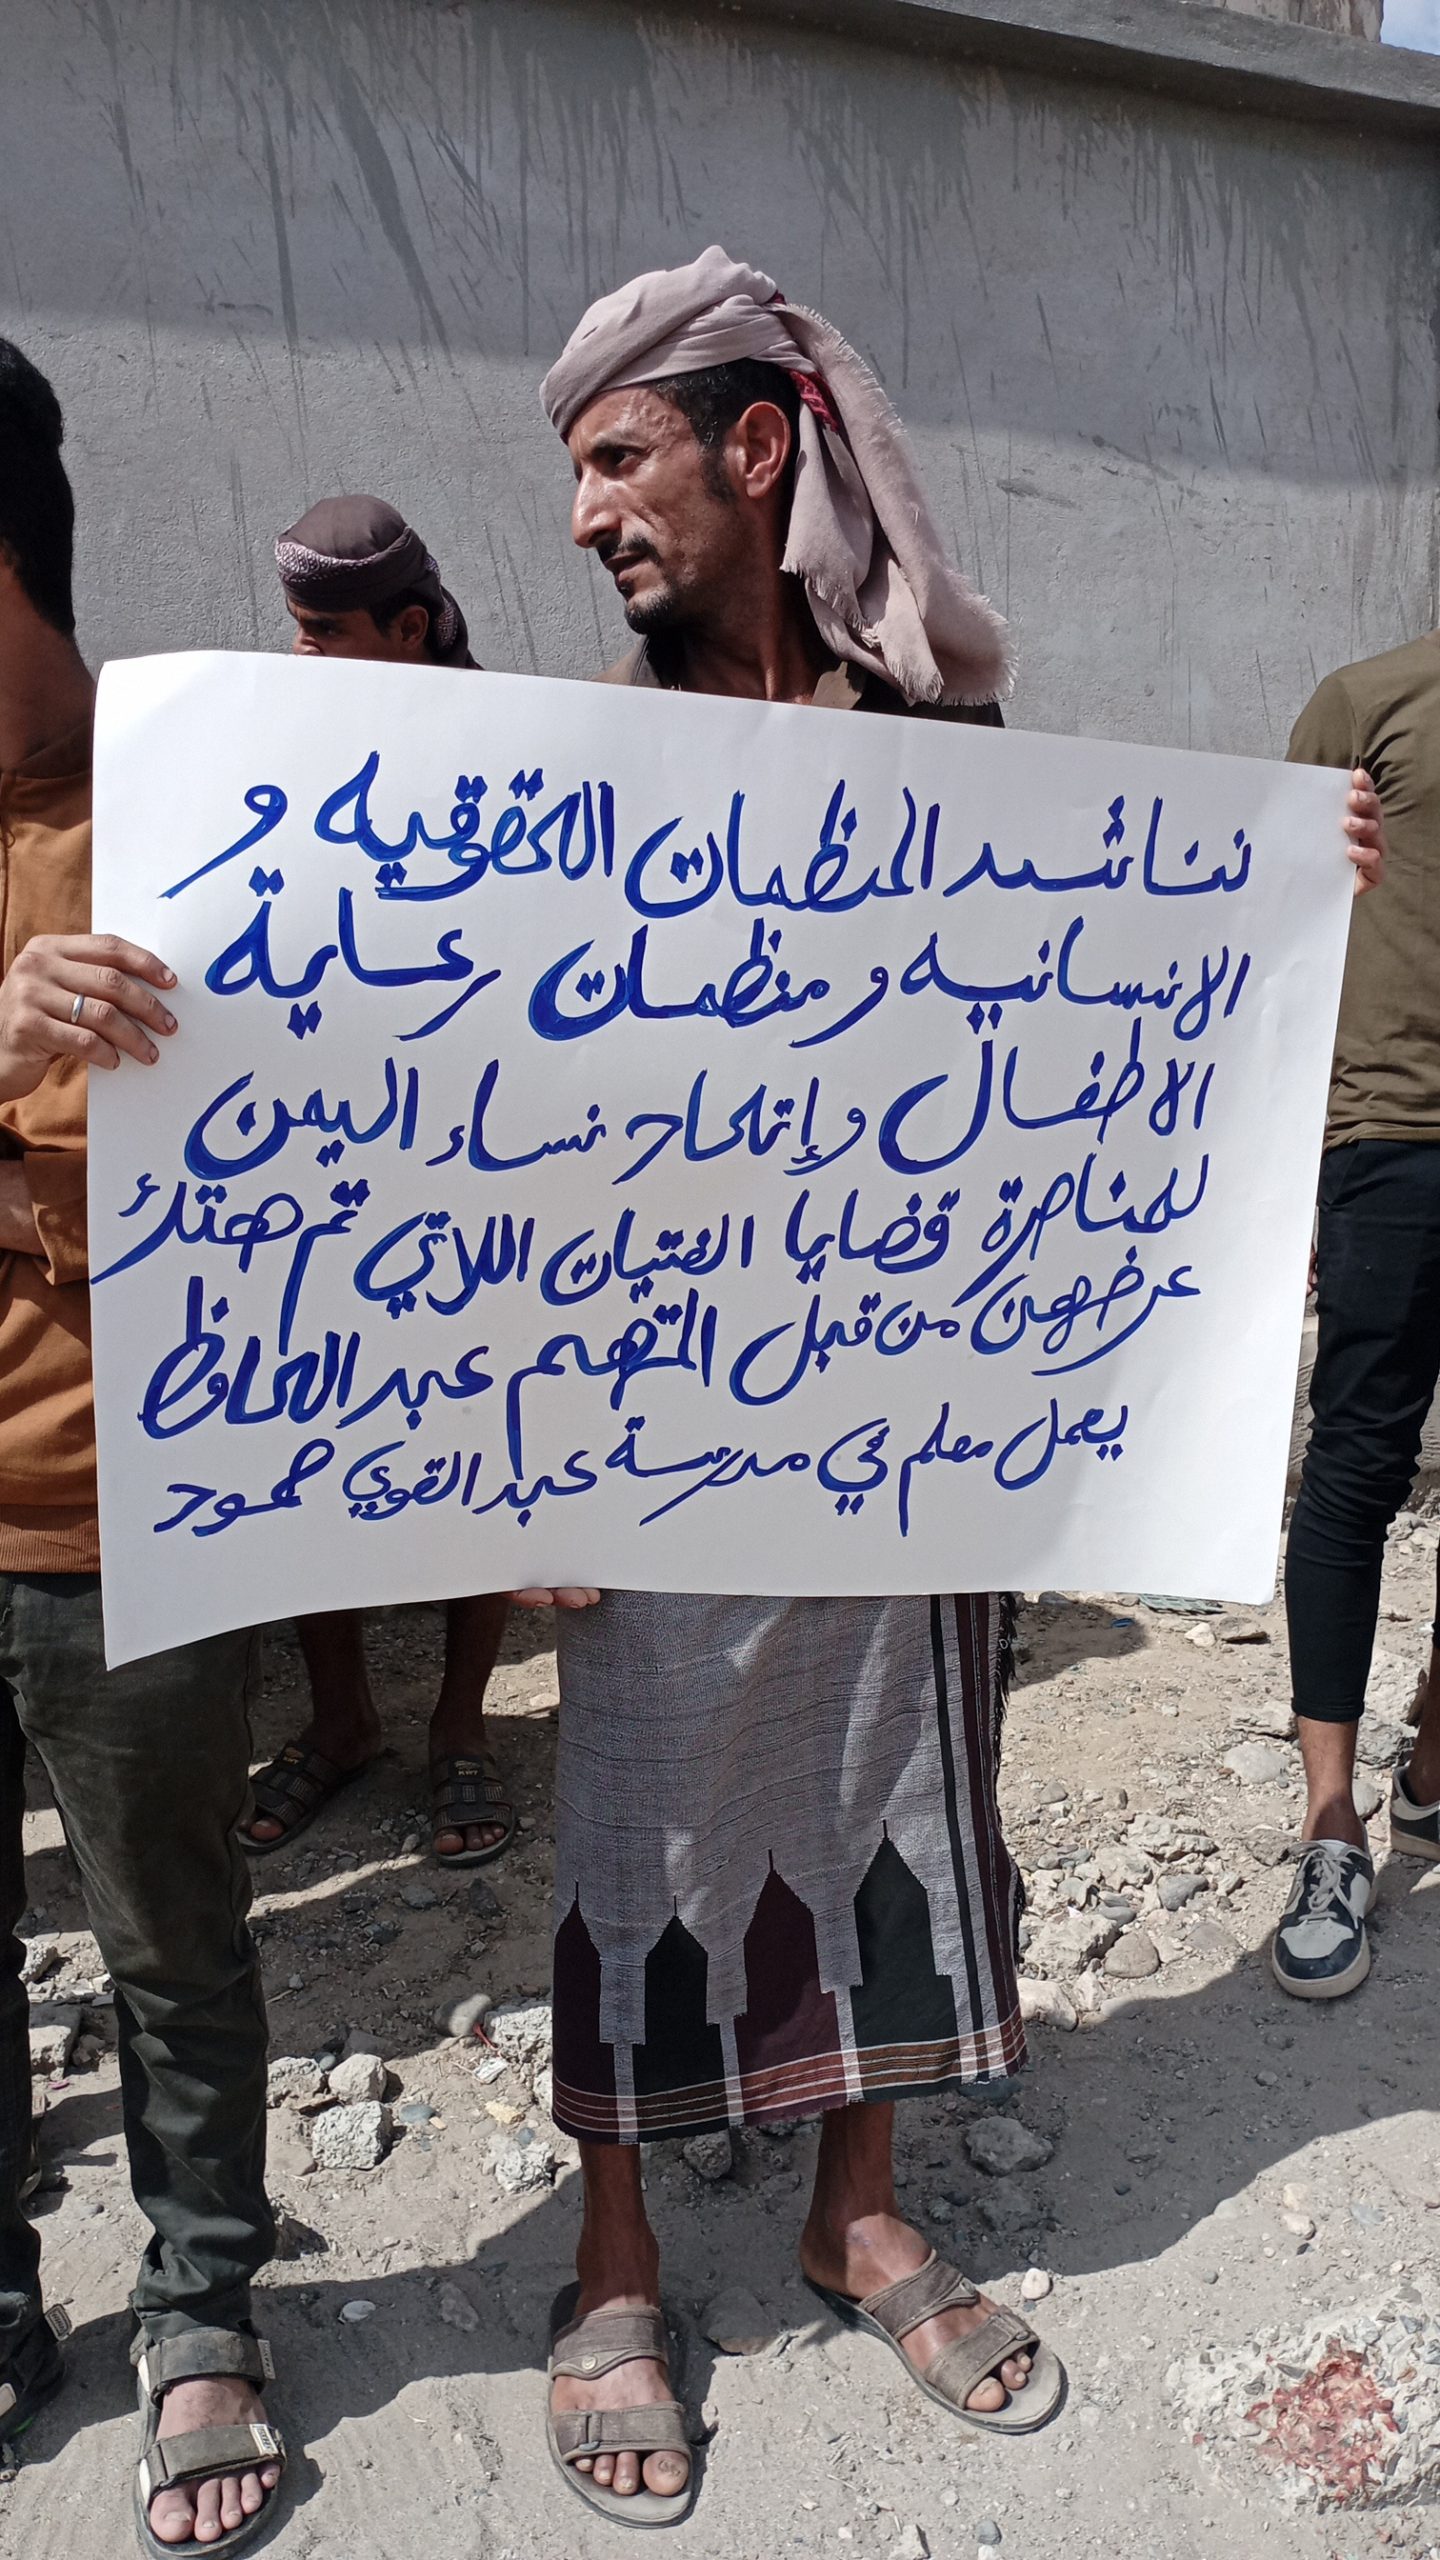 نناشد المنظمات الحقوقيه و
الانسانيه و منظمات رعاية
الاطفال وإتحاد نساء اليمن
للمناصرة قضايا الفتيات اللاتي تم هتك
عرضهن من قبل المتهم عبد الحافظ
يعمل معلم في مدرسة عبد القوي حمود